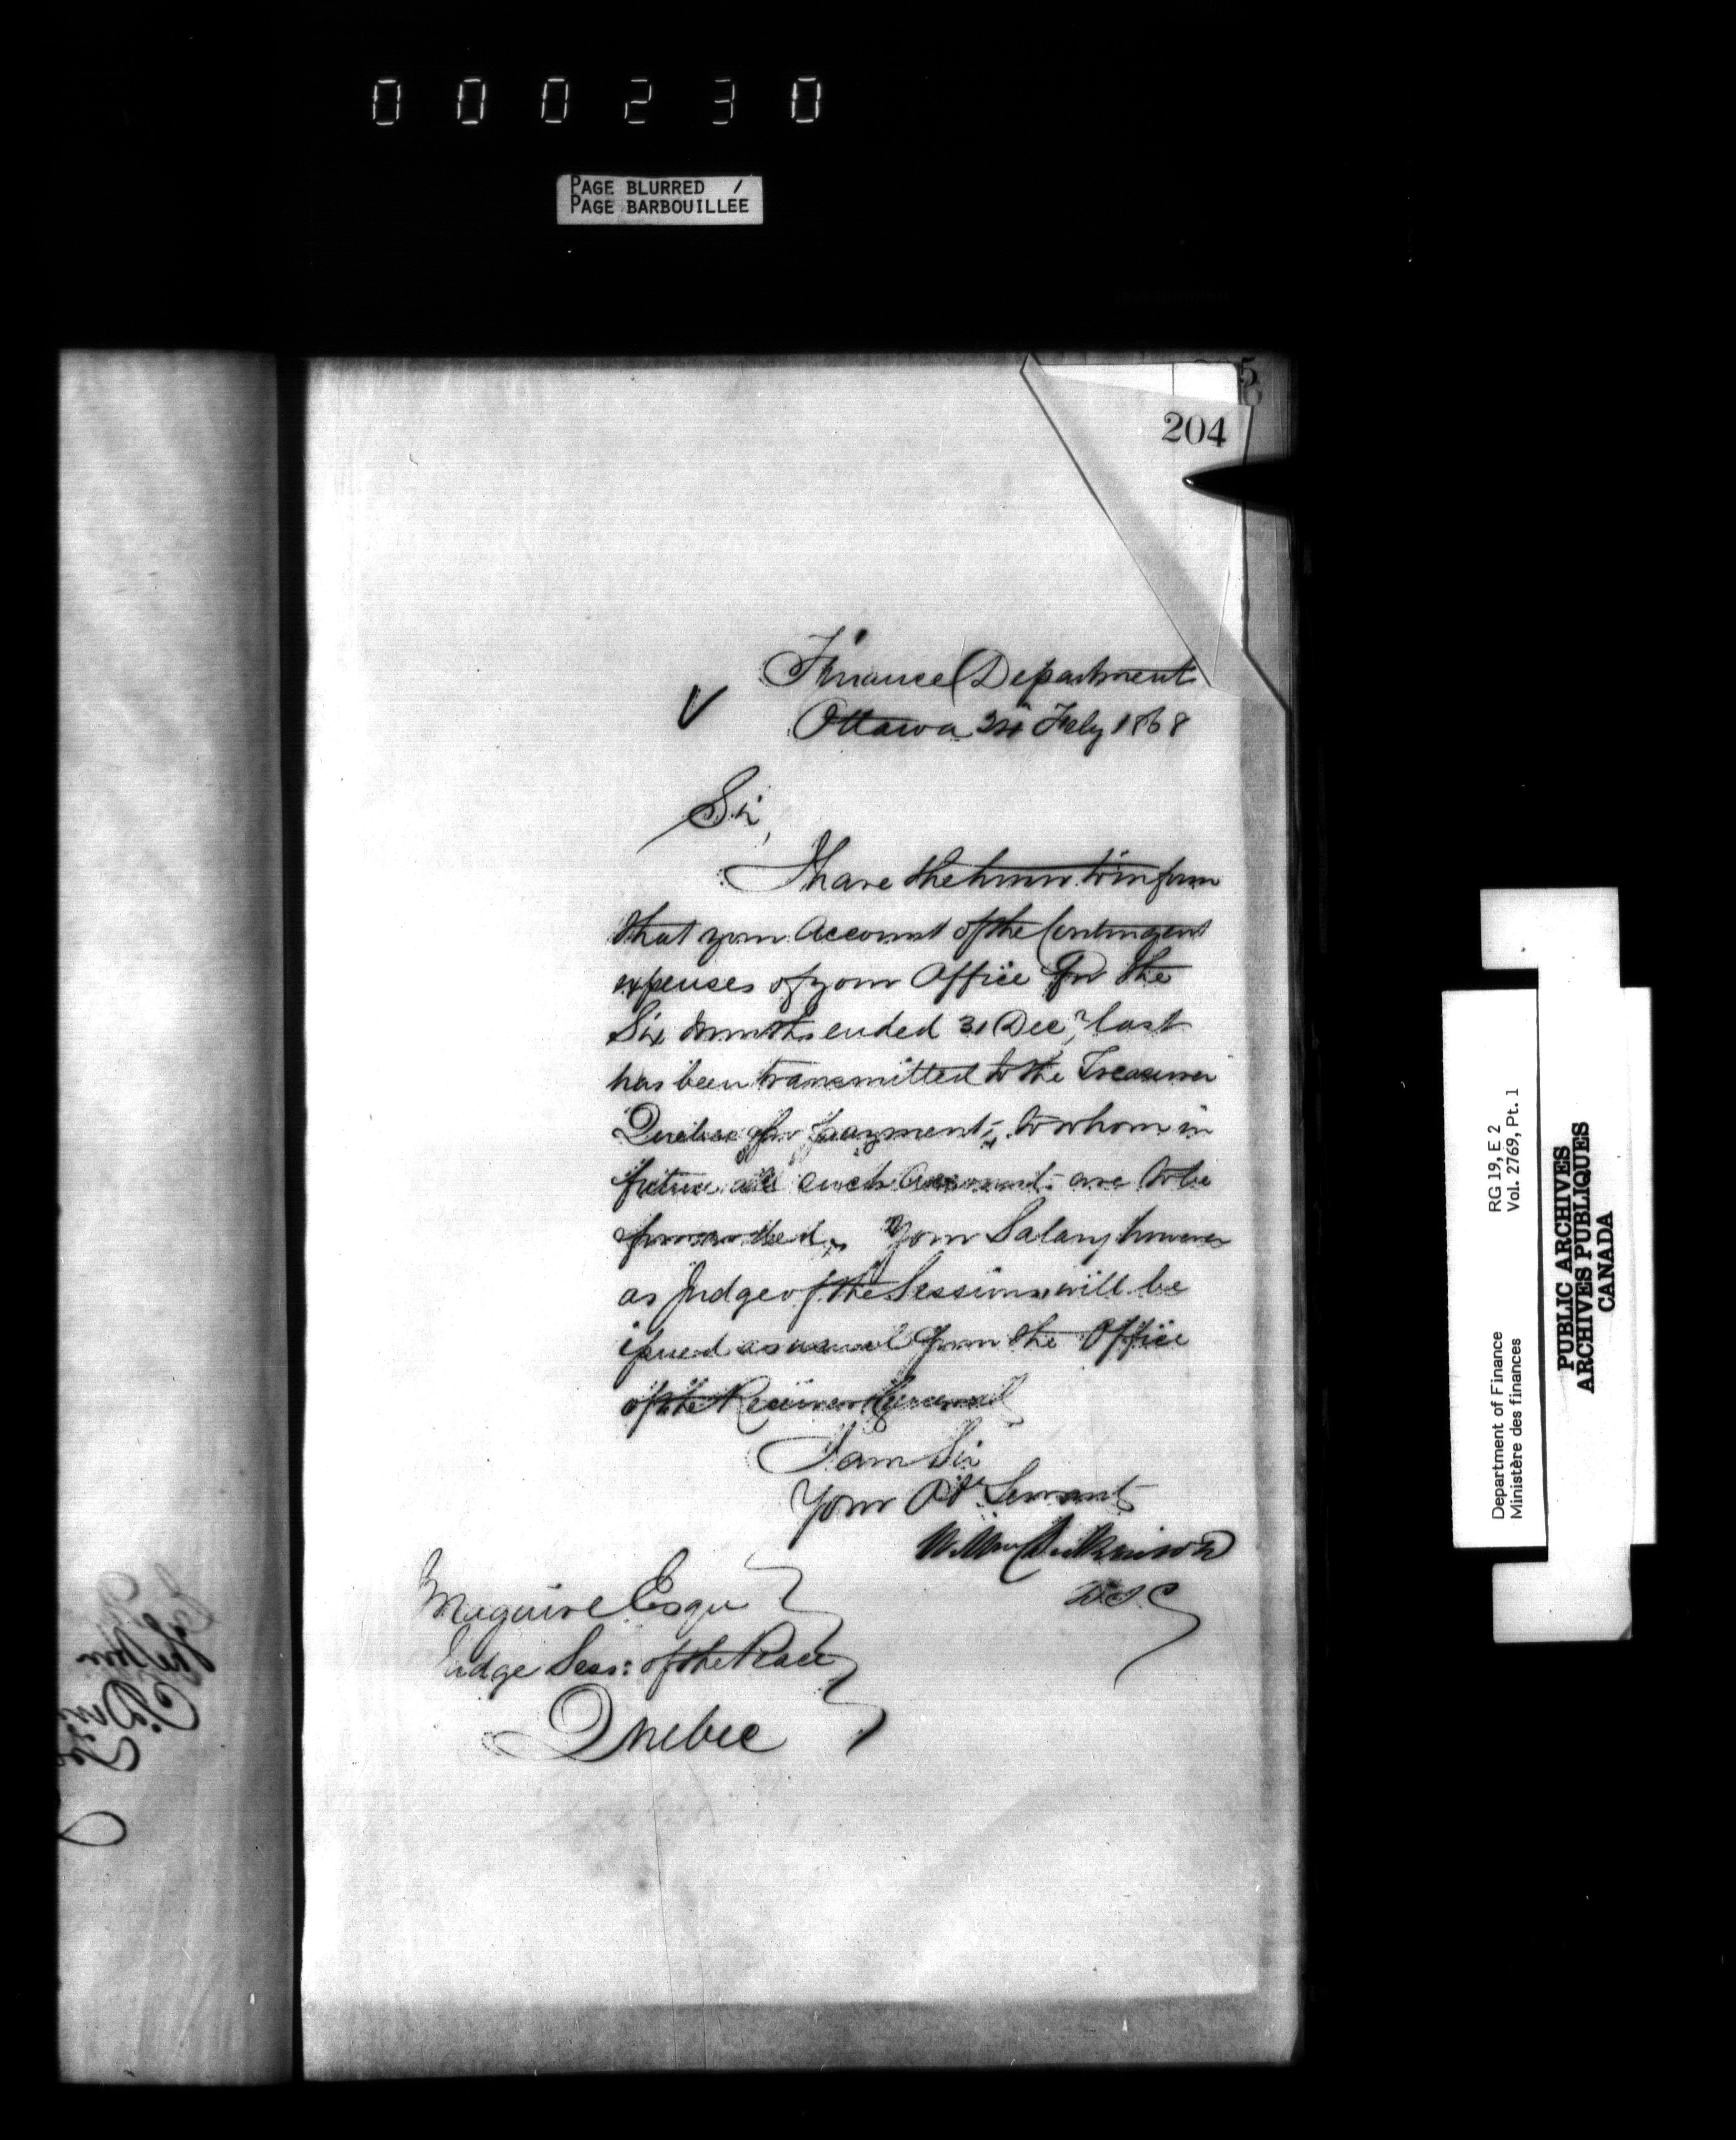 000230
PAGE BLURRED /
PAGE BARBOUILLEE
5
6
204
Finance Department
Ottawa 24 Feby 1868
Sir,
I have the honor to inform
that your Account of the Contingent
expenses of your Office for the
Six months ended 31 Decr last
has been transmitted to the Treasurer
Quebec for payment, to whom in
future all such Accounts are to be
forwarded. Your Salary however
as Judge of the Sessions will be
issued as usual from the Office
of the Receiver General
I am Sir
Your Obt Servant
Wm Dickinson
D.I.G
Maguire Esqu
Judge Sess: of the Peace
Quebec
Department of Finance RG 19, E 2
Ministère des finances Vol. 2769, Pt. 1
PUBLIC ARCHIVES
ARCHIVES PUBLIQUES
CANADA